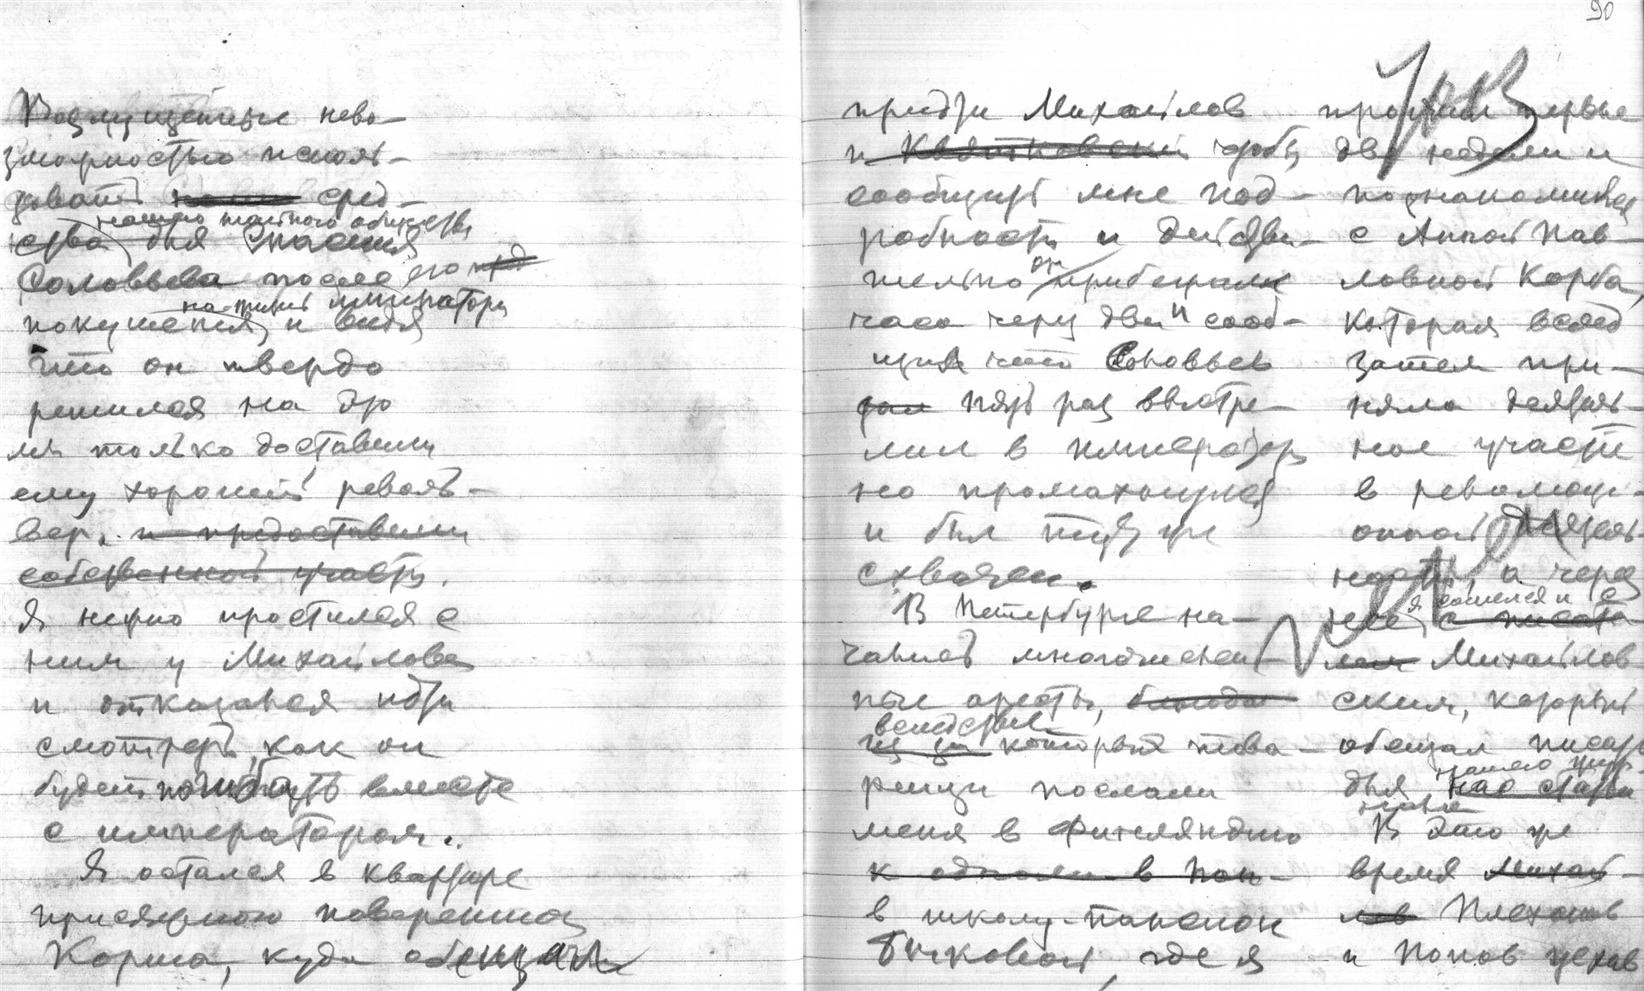 90
Возмущённые нево-
зможностью пользо-
ваться сред-
нашего тайного общества
ства для спасения
Соловьева после его
на-жизнь императора
покушения и видя
что он твердо
решился на это
мы только доставили
ему хороший револь-
вер. и предоставили
собственной участи.
Я нежно простился с
ним у Михайлова
и отказался идти
смотреть, как он
будет погибать вместе
с императором.
Я остался в квартире
присяжного поверенного
Корша, куда обещал
придти Михайлов
и Квятковский чтобы
сообщить мне под-
робности и действи-
он
тельно прибежали
часа через два и сооб-
щив что Соловьев
пять раз выстре-
лил в императора
но промахнулся
и был тут же
схвачен.
В Петербурге на-
чались многочислен-
ные аресты,
вследствие
из за которых това-
рищи послали
меня в Финляндию
к одному в пан-
в школу-пансион
Быковой, где я
прожил первые
две недели и
познакомился
с Анной Пав-
ловной Корба,
которая вслед
затем при-
няла деятель-
ное участие
в революци-
онной деятель-
ности, а через
я сошелся и с
нее с писате
лем Михайлов-
ским, который
обещал писать
нашего жур-
для нас статьи
нала
В это же
время Михай-
лов Плеханов
и Попов уехав